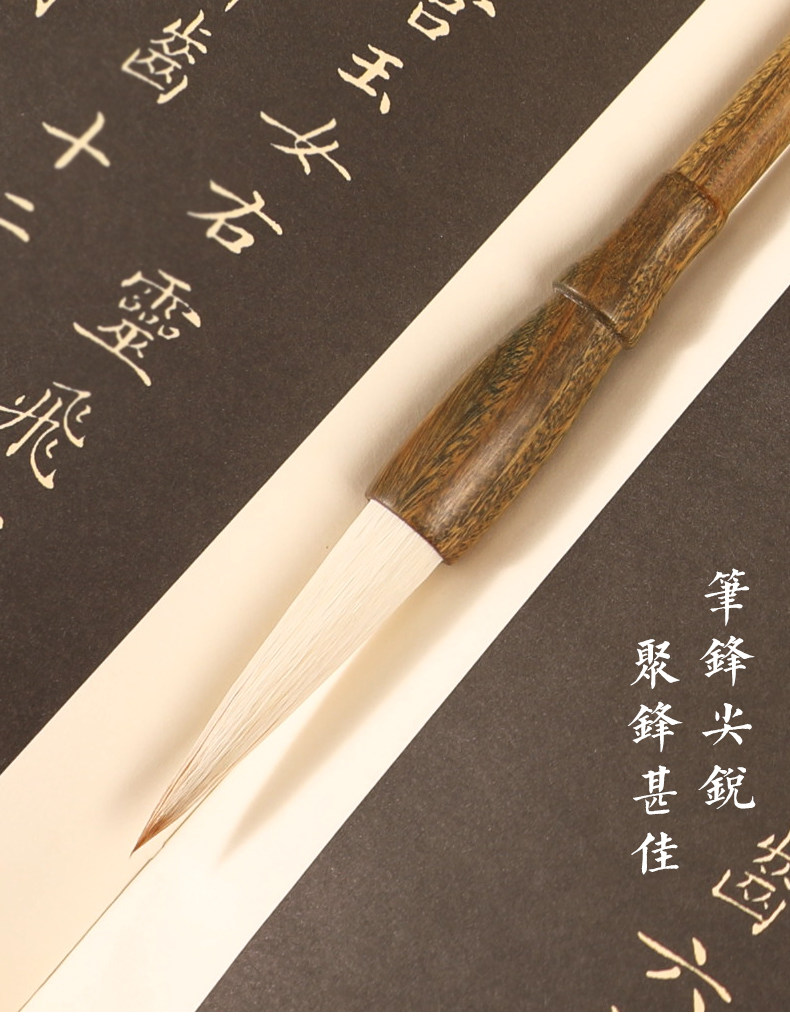 玉女右靈飛
齒十二
筆鋒尖銳
聚鋒甚佳
齒六